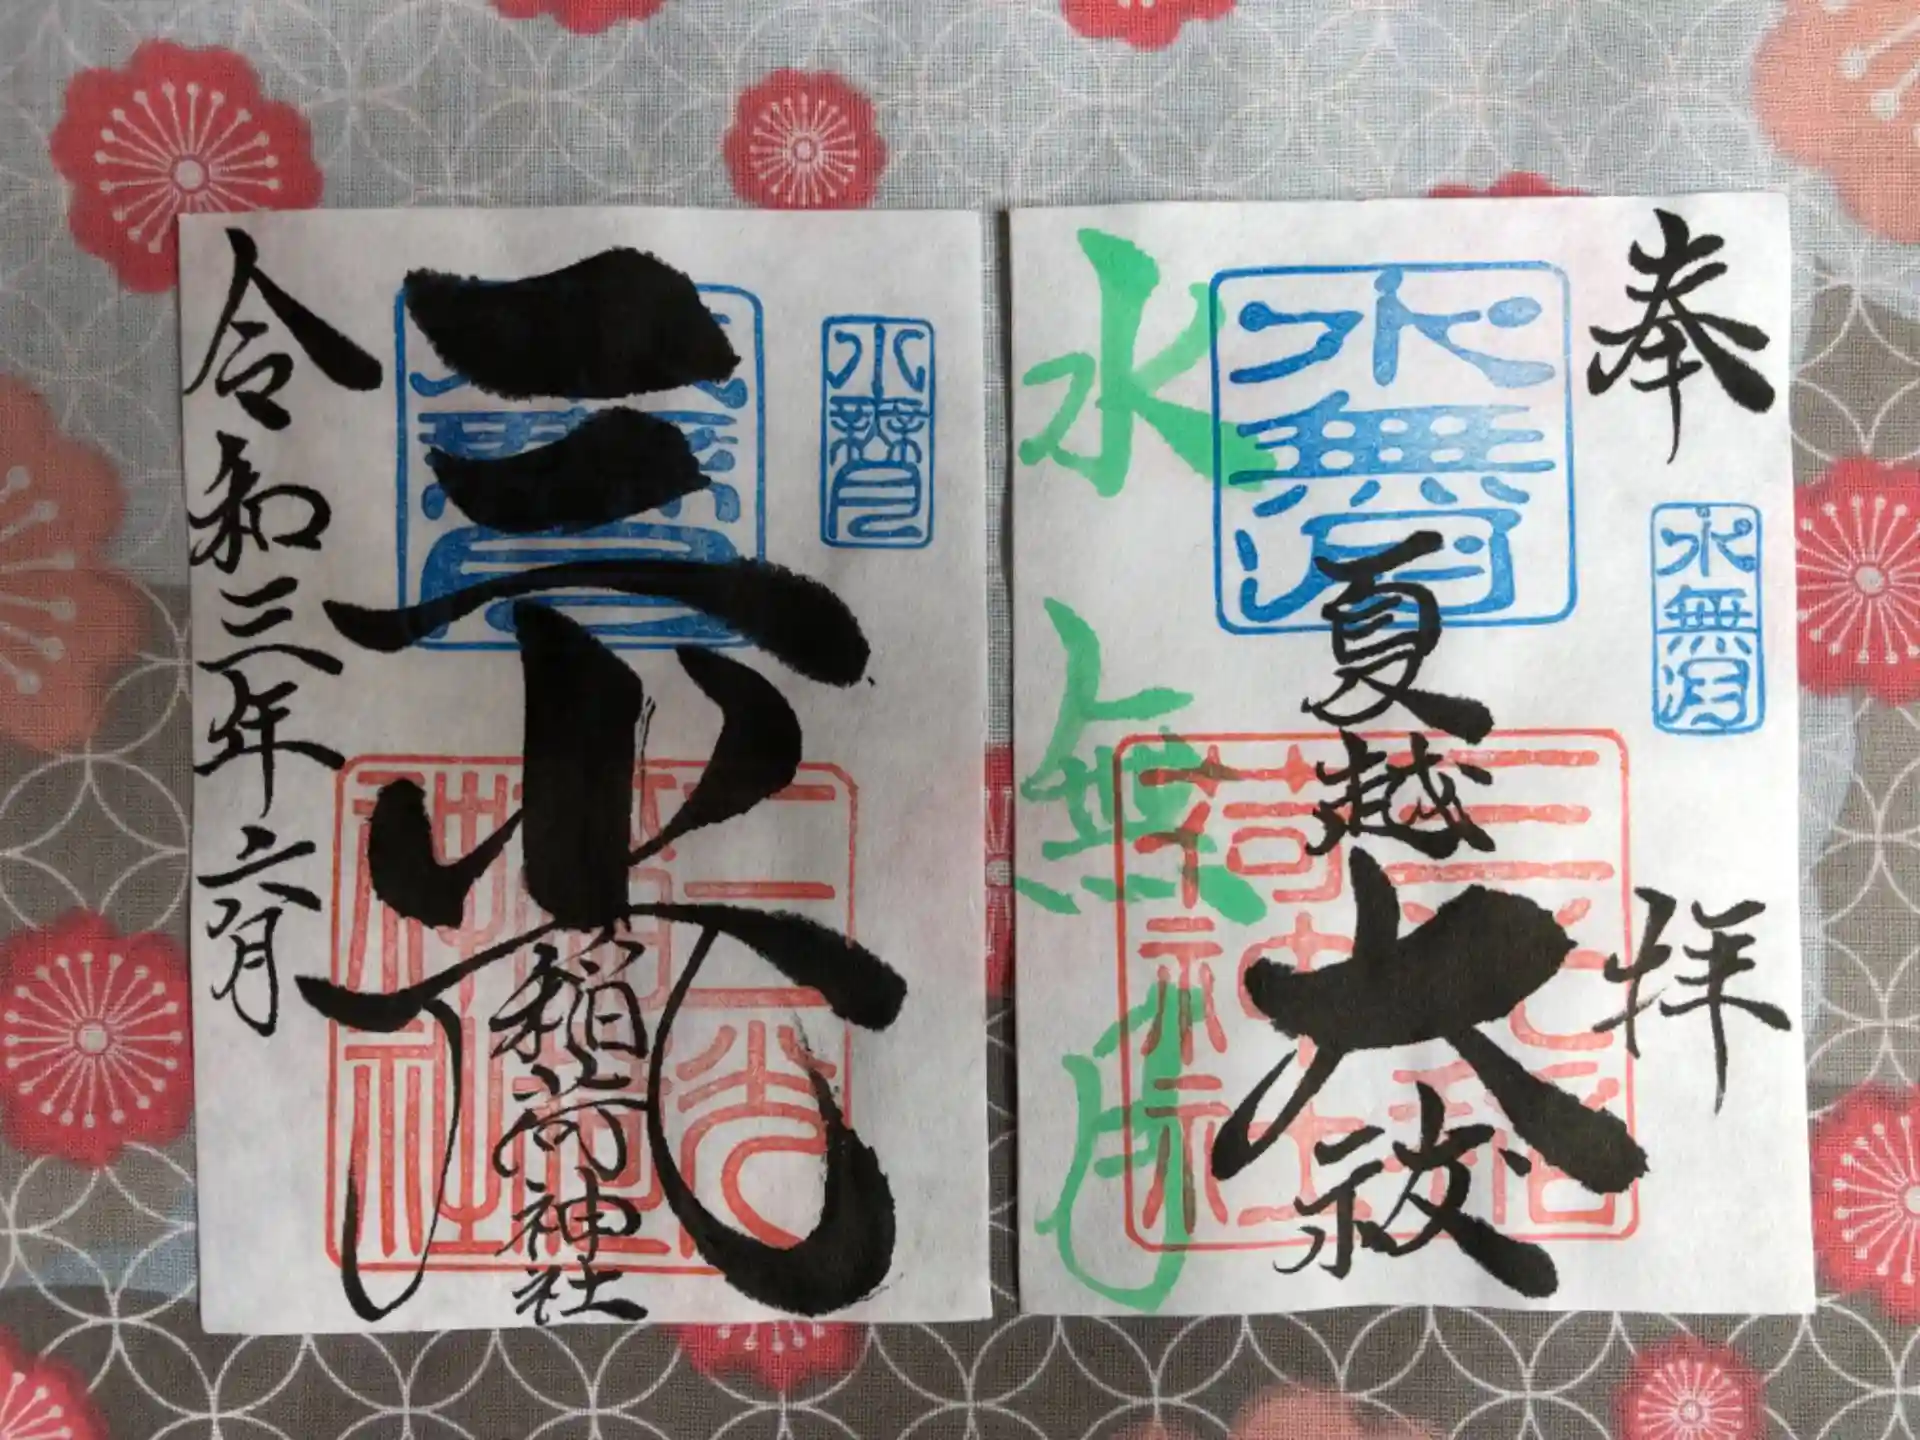 奉拝
水無月
水無月
夏越大祓
三光稲荷神社
水無月
水無月
水無月
三光
稲荷神社
三光稲荷神社
令和三年六月